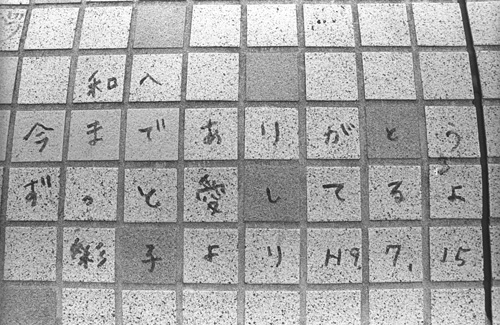 和へ
今までありがとう
ずっと愛してるよ
彩子より H9. 7. 15